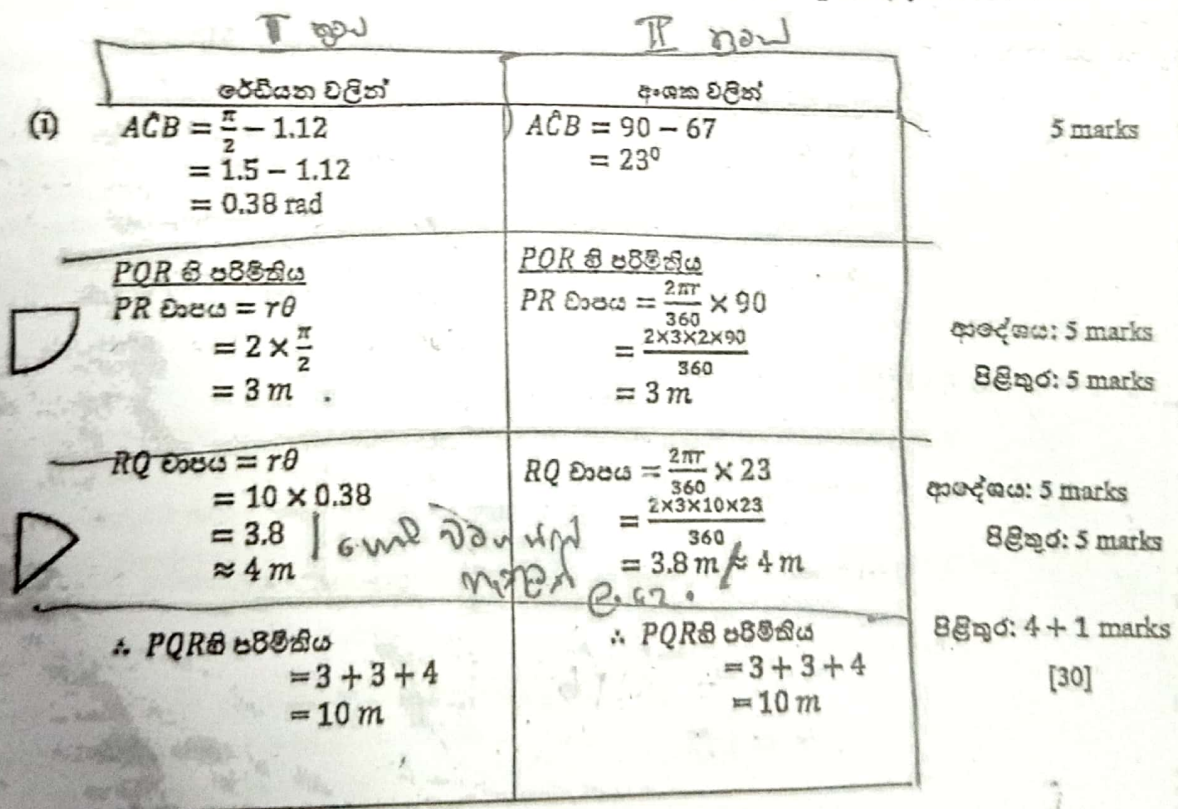 I ක්‍රමය
II ක්‍රමය
රේඩියන වලින්
අංශක වලින්
(i)
AĈB = π/2 − 1.12
= 1.5 − 1.12
= 0.38 rad
AĈB = 90 − 67
= 23⁰
5 marks
PQR හි පරිමිතිය
PR චාපය = rθ
= 2 × π/2
= 3 m .
PQR හි පරිමිතිය
PR චාපය = 2πr/360 × 90
= 2×3×2×90/360
= 3 m
ආදේශය: 5 marks
පිළිතුර: 5 marks
RQ චාපය = rθ
= 10 × 0.38
= 3.8
≈ 4 m
RQ චාපය = 2πr/360 × 23
= 2×3×10×23/360
= 3.8 m ≈ 4 m
ආදේශය: 5 marks
පිළිතුර: 5 marks
∴ PQRහි පරිමිතිය
= 3 + 3 + 4
= 10 m
∴ PQRහි පරිමිතිය
= 3 + 3 + 4
= 10 m
පිළිතුර: 4 + 1 marks
[30]